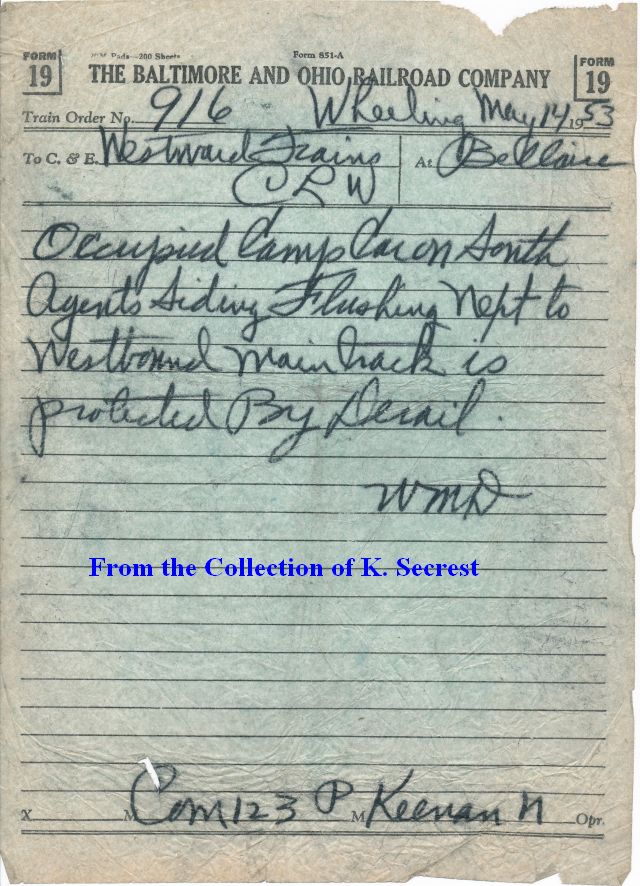 FORM 19
W M Pads—200 Sheets Form 851-A
THE BALTIMORE AND OHIO RAILROAD COMPANY
FORM 19
Train Order No. 916 Wheeling May 14 1953
To C. & E. Westward Trains At Bellaire
C L W
Occupied Camp Car on South
Agents Siding Flushing Next to
Westbound main track is
protected By Derail.
WMD
From the Collection of K. Secrest
X M Com 123 P M Keenan Opr.